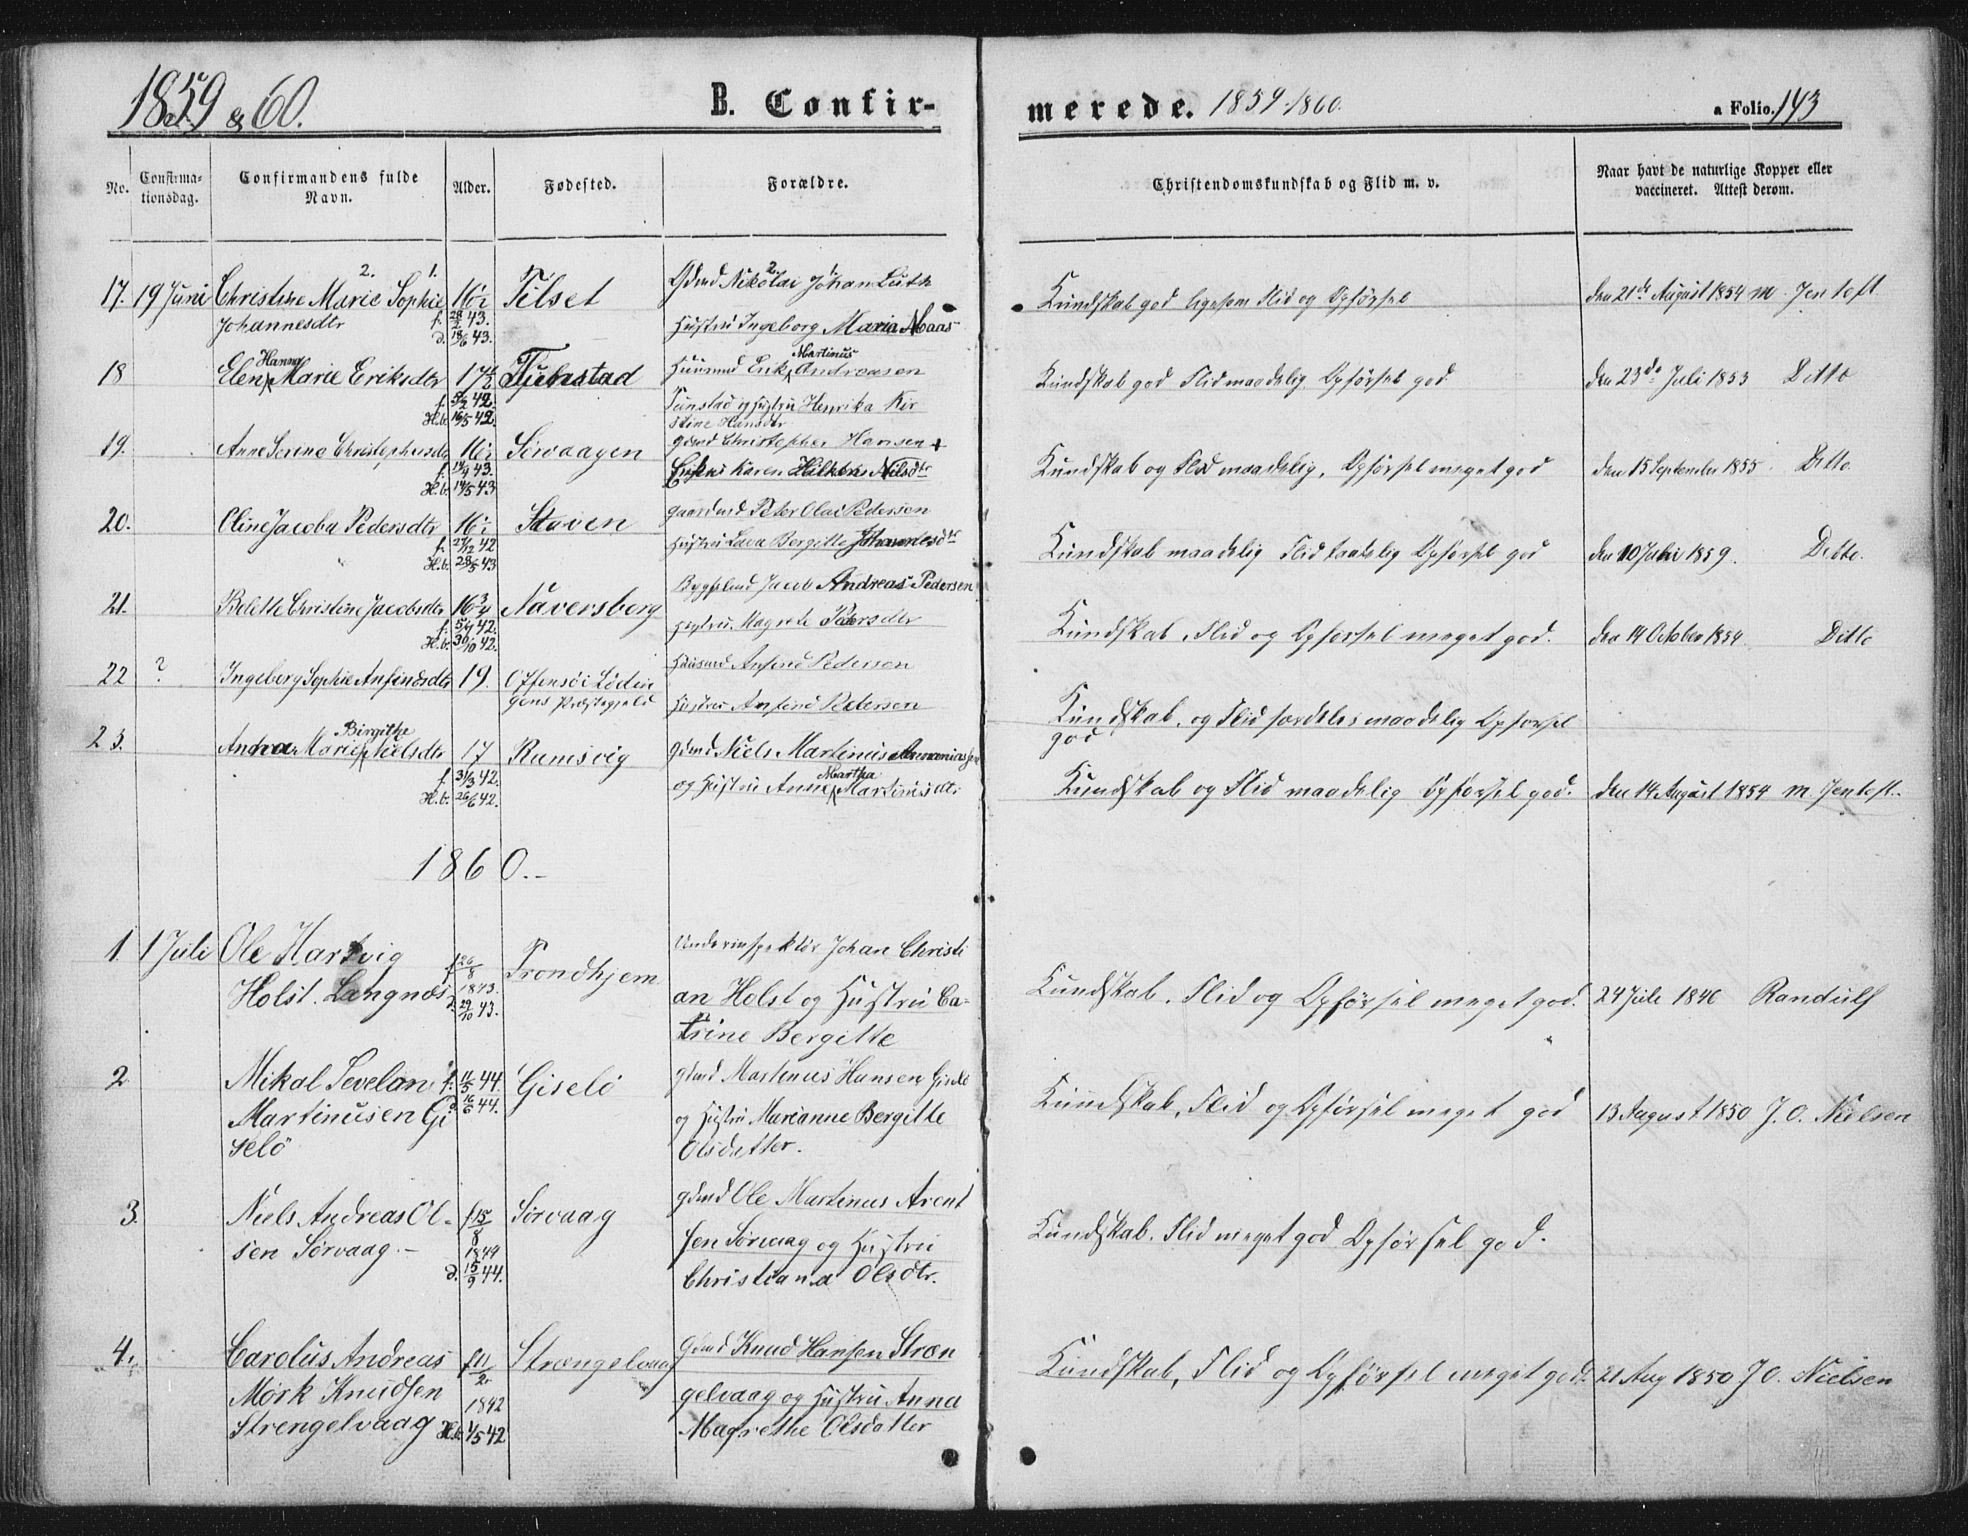 1859 & 60.
B. Confirmerede. 1859-1860.
a Folio. 143
No.
Confirmationsdag.
Confirmandens fulde Navn.
Alder.
Fødested.
Forældre.
Christendomskundskab og Flid m. v.
Naar havt de naturlige Kopper eller vaccineret. Attest derom.
17. 19 Juni Christine Marie Sophie 16½ Tilset Gdmd Nikolai Johan Luth
2. 1. 2. 1.
Johannesdtr f. 28/2 43. d. 18/6 43. Hustru Ingeborg Maria Maas
Kundskab god ligesom Flid og Opførsel den 21de August 1854 M. Jentoft
18 Elen Hanna Marie Eriksdtr 17½ Tunstad Huusmd Erik Martinus Andreasen
f. 5/2 42. H.b. 16/5 42. Tunstad og Hustru Henrika Kir
stine Hansdtr
Kundskab god Flid maadelig Opførsel god den 23de Juli 1853 Ditto
19. Anne Serine Christophersdtr 16½ Sørvaagen gdmd Christopher Hansen +
f. 14/4 43. H.b. 14/5 43 Karen Nilsdtr
Kundskab og Flid maadelig, Opførsel meget god den 15 September 1855. Ditto.
20. Oline Jacoba Pedersdtr 16½ Staven gaardmd Peter Olai Pedersen
f. 27/12 42 H.b. 28/5 43 Hustru Lava Bergitte Johannesdtr
Kundskab maadelig Flid taalelig Opførsel god den 10 Juli 1859. Ditto.
21. Belette Christine Jacobsdtr 16¾ Naversberg Bygselmd Jacob Andreas Pedersen
f. 5/7 42. H.b. 30/10 42. Hustru Magrete Pedersdtr
Kundskab, Flid og Opførsel meget god. den 14 October 1854. Ditto
22 ? Ingeborg Sophie Anfindsdtr 19. Offensø i Lødin Huusmd Anfind Pedersen
gens Præstegjeld Hustru Anfind Pedersen
Kundskab, og Flid særdeles maadelig Opførsel
god
23. Anna Marie Birgithe Nielsdtr 17 Ramsvig gdmd Niels Martinus Annaniassen
f. 31/3 42. H.b. 26/6 42. og Hustru Anne Martha Martinisdtr
Kundskab og Flid maadelig Opførsel god. den 14 August 1854 M. Jentoft.
1860.-
1. 1 Juli Ole Hartvig f. 26/8 Trondhjem Underinspektør Johan Christi
Holst. Langnæs 1843. d. 29/10 43. an Holst og Hustru Ca-
trine Bergitte
Kundskab, Flid og Opførsel meget god. 24 Juli 1846 Randulf
2 Mikal Sevelan f. 11/5 44. Giselö gdmd Martinus Hansen Giselö
Martinusen Gi d. 16/6 44. og Hustru Marianne Bergitte
selö Olsdatter.
Kundskab, Flid og Opførsel meget god 13 August 1850 J. O. Nielsen
3. Niels Andreas Ol- f. 15/8 Sørvaag gdmd Ole Martinus Arent
sen Sørvaag.- 1844 d. 15/9 44. sen Sørvaag og Hustru
Christiana Olsdtr.
Kundskab, Flid meget god Opførsel god.
4. Carolus Andreas f. 11/2 Strængelvaag Gdmd Knud Hansen Stræn
Mørk Knudsen 1842 gelvaag og Hustru Anna
Strengelvaag H.b. 1/5 42 Magrethe Olsdatter
Kundskab, Flid og Opførsel meget god. 21 Aug 1850 J O. Nielsen